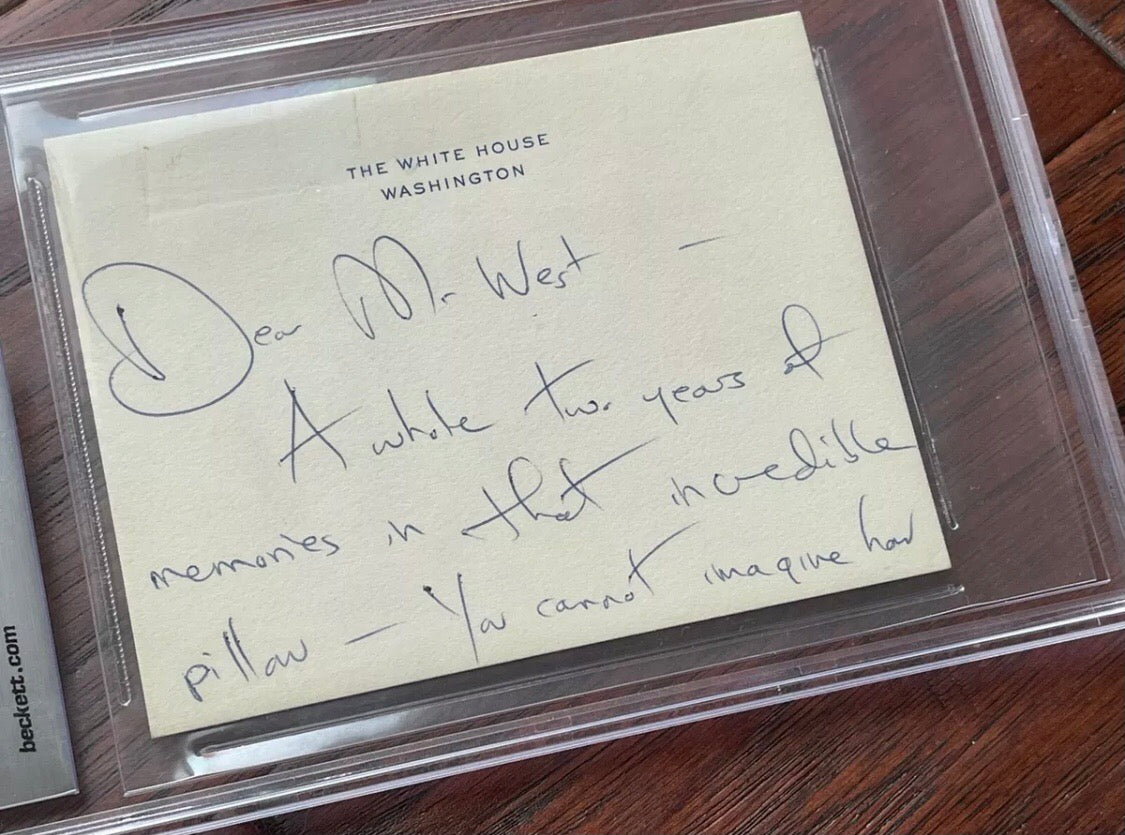 THE WHITE HOUSE
WASHINGTON
Dear Mr. West —
A whole two years of
memories in that incredible
pillow — You cannot imagine how
beckett.com